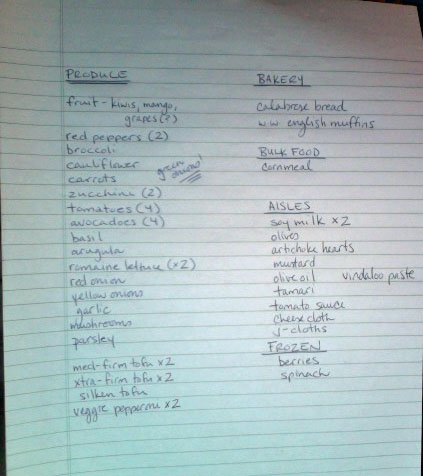 PRODUCE
fruit - kiwis, mango,
grapes (?)
red peppers (2)
broccoli
cauliflower
carrots
green onions!
zucchini (2)
tomatoes (4)
avocadoes (4)
basil
arugula
romaine lettuce (x2)
red onion
yellow onions
garlic
mushrooms
parsley
med-firm tofu x2
xtra-firm tofu x2
silken tofu
veggie pepperoni x2
BAKERY
calabrese bread
w.w english muffins
BULK FOOD
cornmeal
AISLES
soy milk x2
olives
artichoke hearts
mustard
olive oil vindaloo paste
tamari
tomato sauce
cheese cloth
j-cloths
FROZEN
berries
spinach